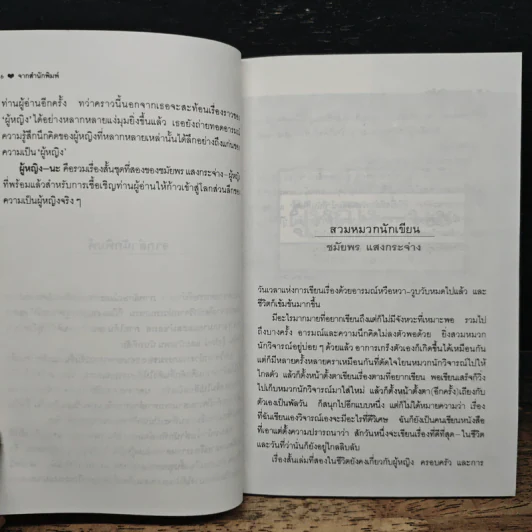 ๖ ♥ จากสำนักพิมพ์
ท่านผู้อ่านอีกครั้ง ทว่าคราวนี้นอกจากเธอจะสะท้อนเรื่องราวของ
'ผู้หญิง' ได้อย่างหลากหลายแง่มุมยิ่งขึ้นแล้ว เธอยังถ่ายทอดอารมณ์
ความรู้สึกนึกคิดของผู้หญิงที่หลากหลายเหล่านั้นได้ลึกอย่างถึงแก่นของ
ความเป็น 'ผู้หญิง'
ผู้หญิง–นะ คือรวมเรื่องสั้นชุดที่สองของชมัยพร แสงกระจ่าง–ผู้หญิง
ที่พร้อมแล้วสำหรับการเชื้อเชิญท่านผู้อ่าน ให้ก้าวเข้าสู่โลกส่วนลึกของ
ความเป็นผู้หญิงจริง ๆ
สวมหมวกนักเขียน
ชมัยพร แสงกระจ่าง
วันเวลาแห่งการเขียนเรื่องด้วยอารมณ์หวือหวา–วูบวับหมดไปแล้ว และ
ชีวิตก็เข้มข้นมากขึ้น
มีอะไรมากมายที่อยากเขียนถึงแต่ก็ไม่มีจังหวะที่เหมาะพอ รวมไป
ถึงบางครั้ง อารมณ์และความนึกคิดไม่ลงตัวพอด้วย ยิ่งสวมหมวก
นักวิจารณ์อยู่บ่อย ๆ ด้วยแล้ว อาการเกร็งตัวเองก็เกิดขึ้นได้เหมือนกัน
แต่ก็มีหลายครั้งหลายคราเหมือนกันที่ตัดใจโยนหมวกนักวิจารณ์ไปให้
ไกลตัว แล้วก็ตั้งหน้าตั้งตาเขียนเรื่องตามที่อยากเขียน พอเขียนเสร็จก็วิ่ง
ไปเก็บหมวกนักวิจารณ์มาใส่ใหม่ แล้วก็ตั้งหน้าตั้งตา(อีกครั้ง)เถียงกับ
ตัวเองเป็นพัลวัน ก็สนุกไปอีกแบบหนึ่ง แต่ก็ไม่ได้หมายความว่า เรื่อง
ที่ฉันเขียนเองวิจารณ์เองจะมีอะไรที่ดีวิเศษ ฉันก็ยังเป็นคนเขียนหนังสือ
ที่เอาแต่ตั้งความปรารถนาว่า สักวันหนึ่งจะเขียนเรื่องที่ดีที่สุด–ในชีวิต
และวันที่ว่านั้นก็ยังอยู่ไกลลิบลับ
เรื่องสั้นเล่มที่สองในชีวิตยังคงเกี่ยวกับผู้หญิง ครอบครัว และการ